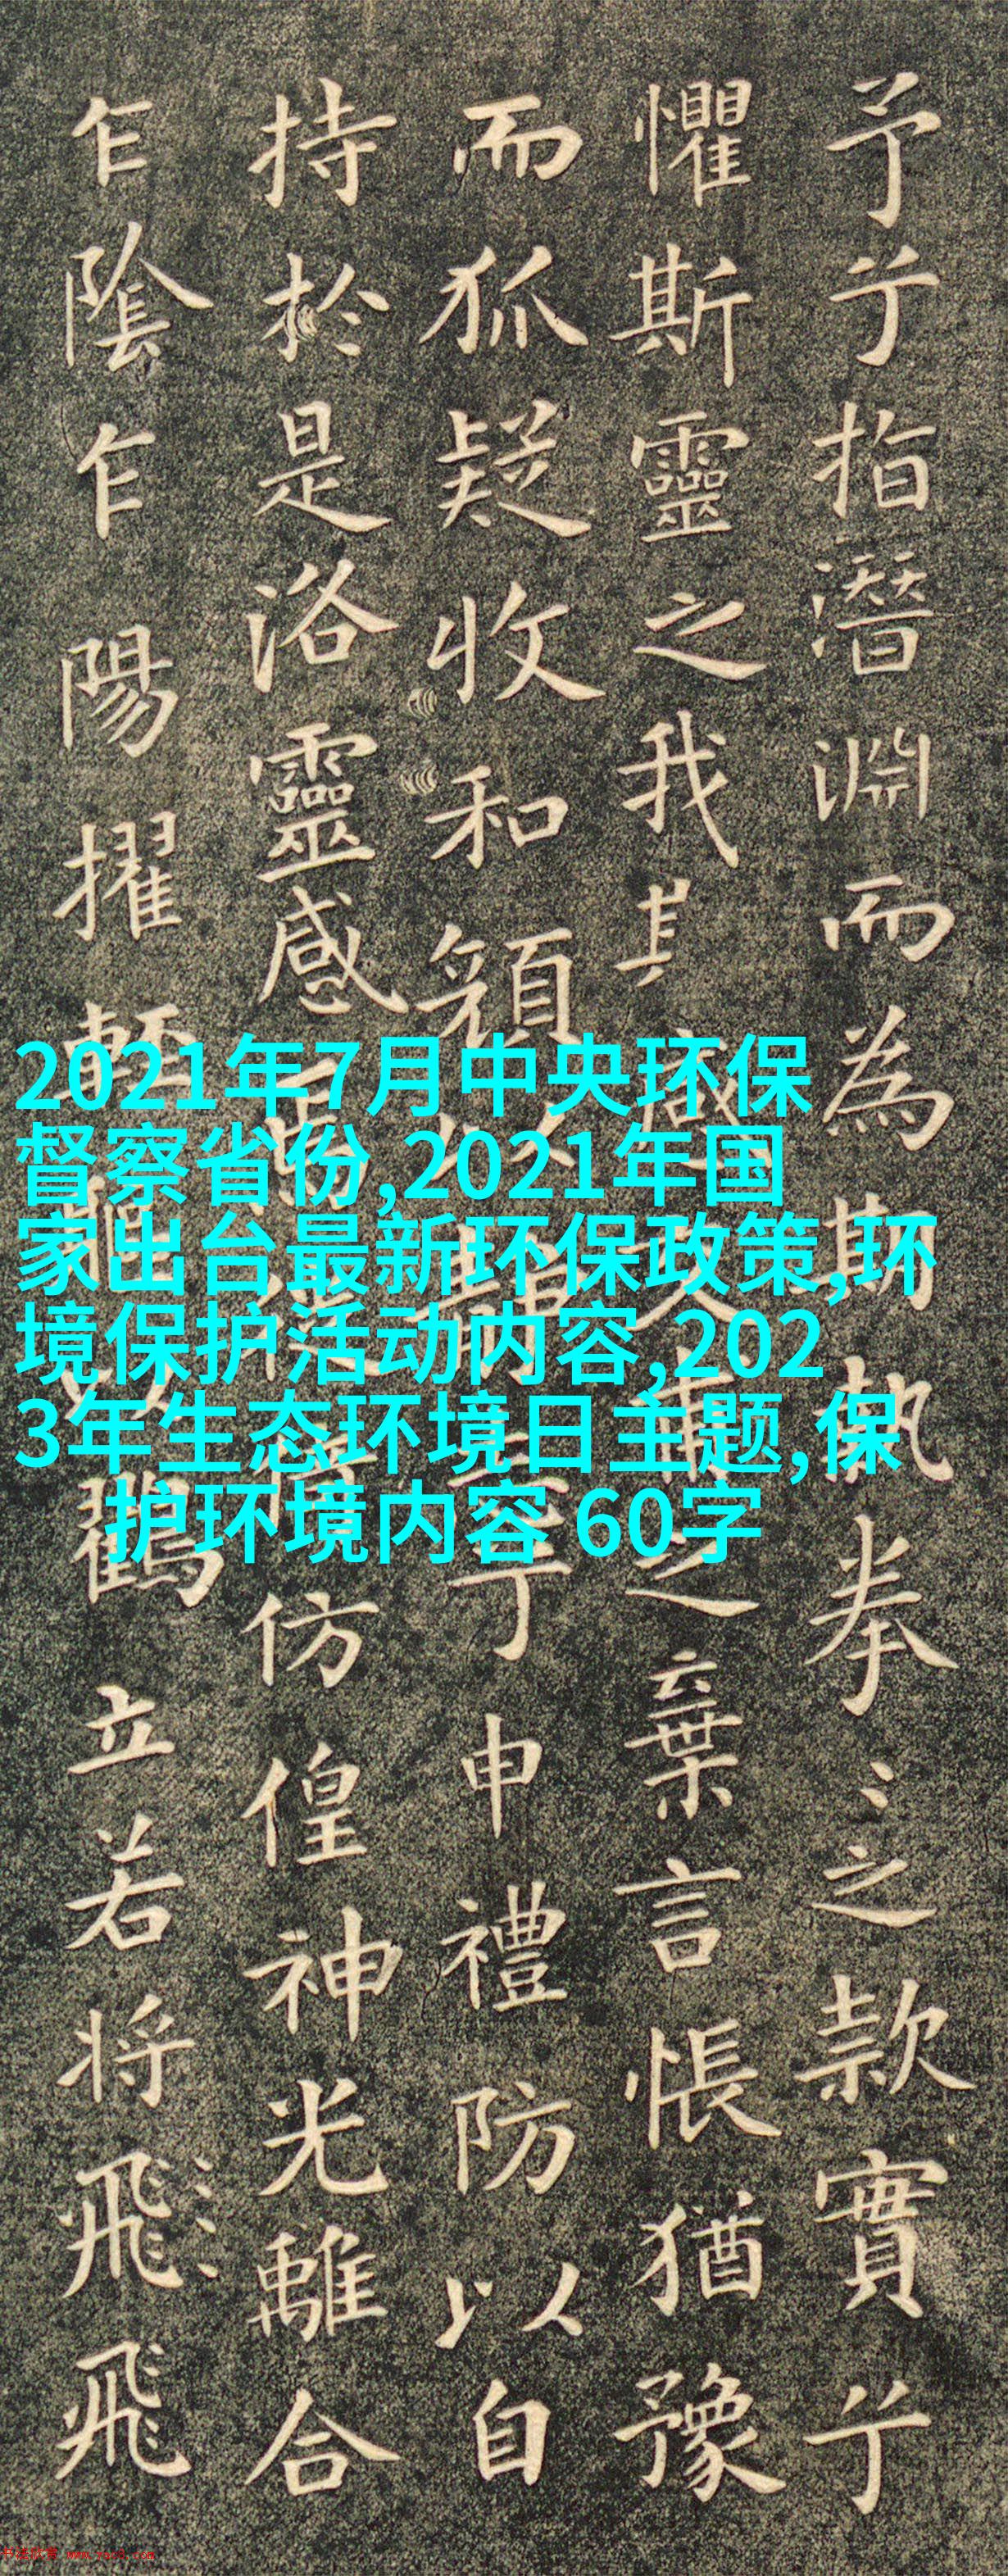 予兮指潛淵而為期執拳〻之款實兮
懼斯靈之我其感交甫之棄言悵猶豫
而狐疑收和顏以靜志于申禮防以自
持於是洛靈感焉徙倚仿偟神光離合
乍陰乍陽擢輕軀以鶴立若將飛飛
2021年7月中央环保
督察省份,2021年国
家出台最新环保政策,环
境保护活动内容,202
3年生态环境日主题,保
护环境内容 60字